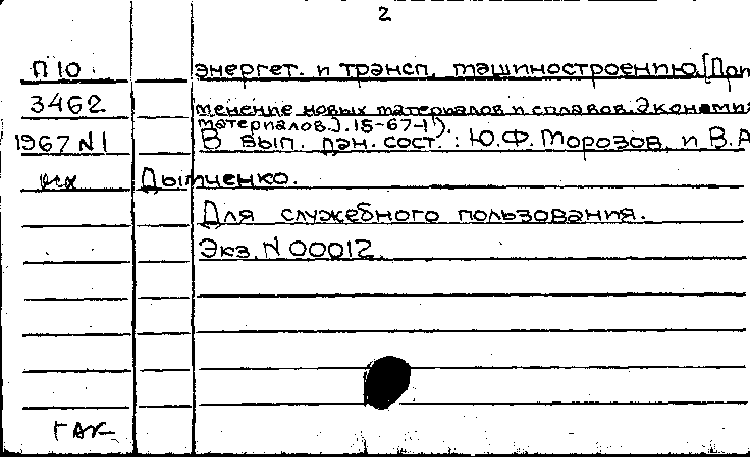 2
П 10 энергет. и трансп. машиностроению. [При
3462 менение новых материалов и сплавов. Экономи
материалов.). 15-67-1").
1967 N1 В вып. дан. сост. : Ю.Ф. Морозов, и В.А
Дымченко.
Для служебного пользования.
Экз. N 00012.
ГАК